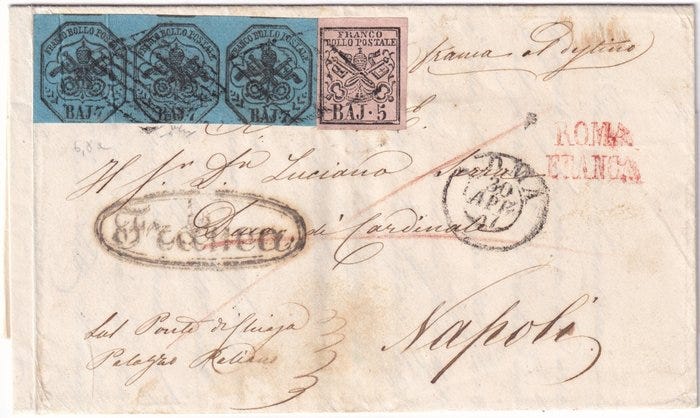 FRANCO BOLLO POSTALE
BAJ·7
FRANCO BOLLO POSTALE
BAJ·7
FRANCO BOLLO POSTALE
BAJ·7
FRANCO
BOLLO POSTALE
BAJ·5
franca al Destino
ROMA
FRANCA
6,8a
Luciano Serra
ROMA
30
APR
Franca
di Cardinale
Napoli
sul Ponte di Chiaja
Palazzo